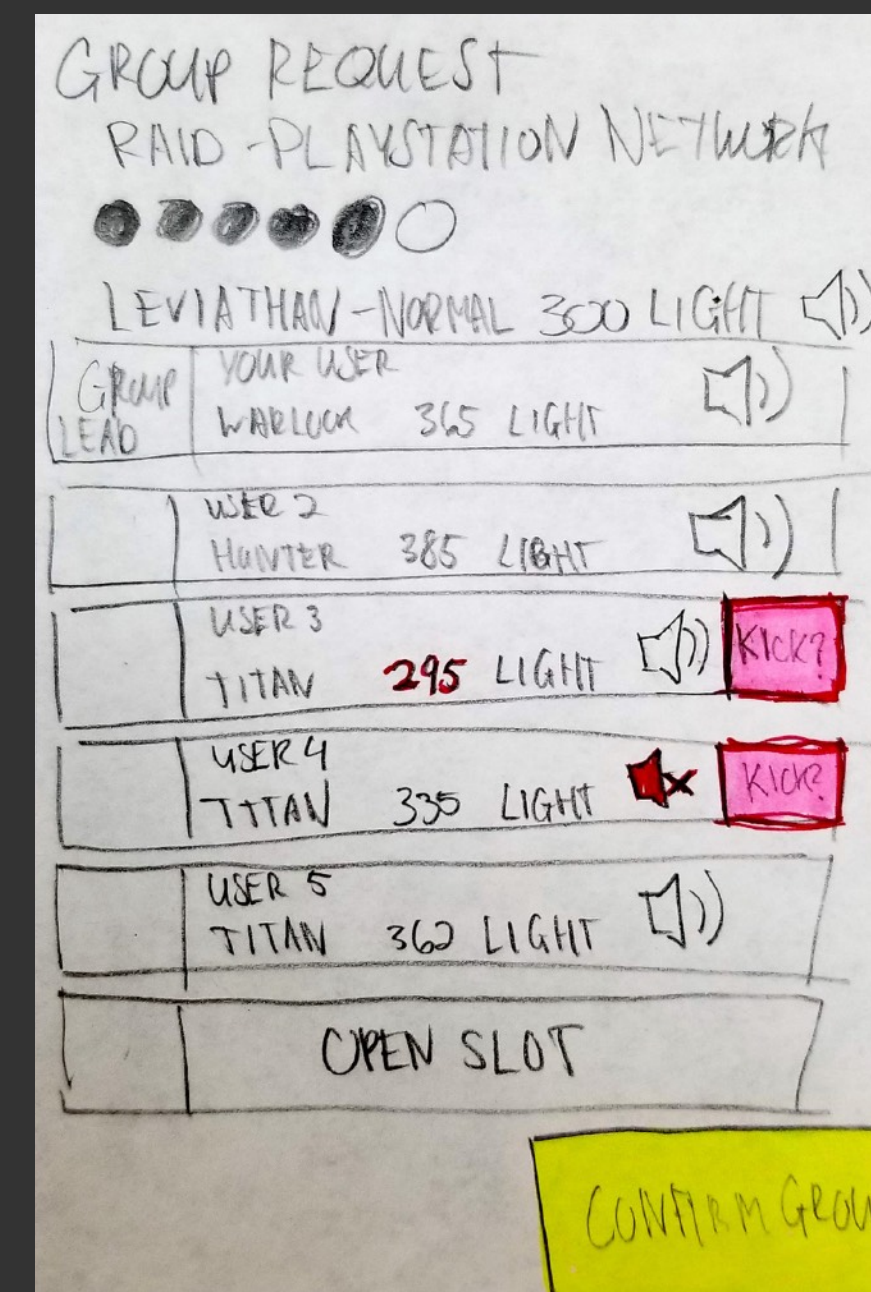 GROUP REQUEST
RAID - PLAYSTATION NETWORK
LEVIATHAN - NORMAL 300 LIGHT
GROUP LEAD
YOUR USER
WARLOCK 365 LIGHT
USER 2
HUNTER 385 LIGHT
USER 3
TITAN 295 LIGHT
KICK?
USER 4
TITAN 335 LIGHT
KICK?
USER 5
TITAN 362 LIGHT
OPEN SLOT
CONFIRM GROU